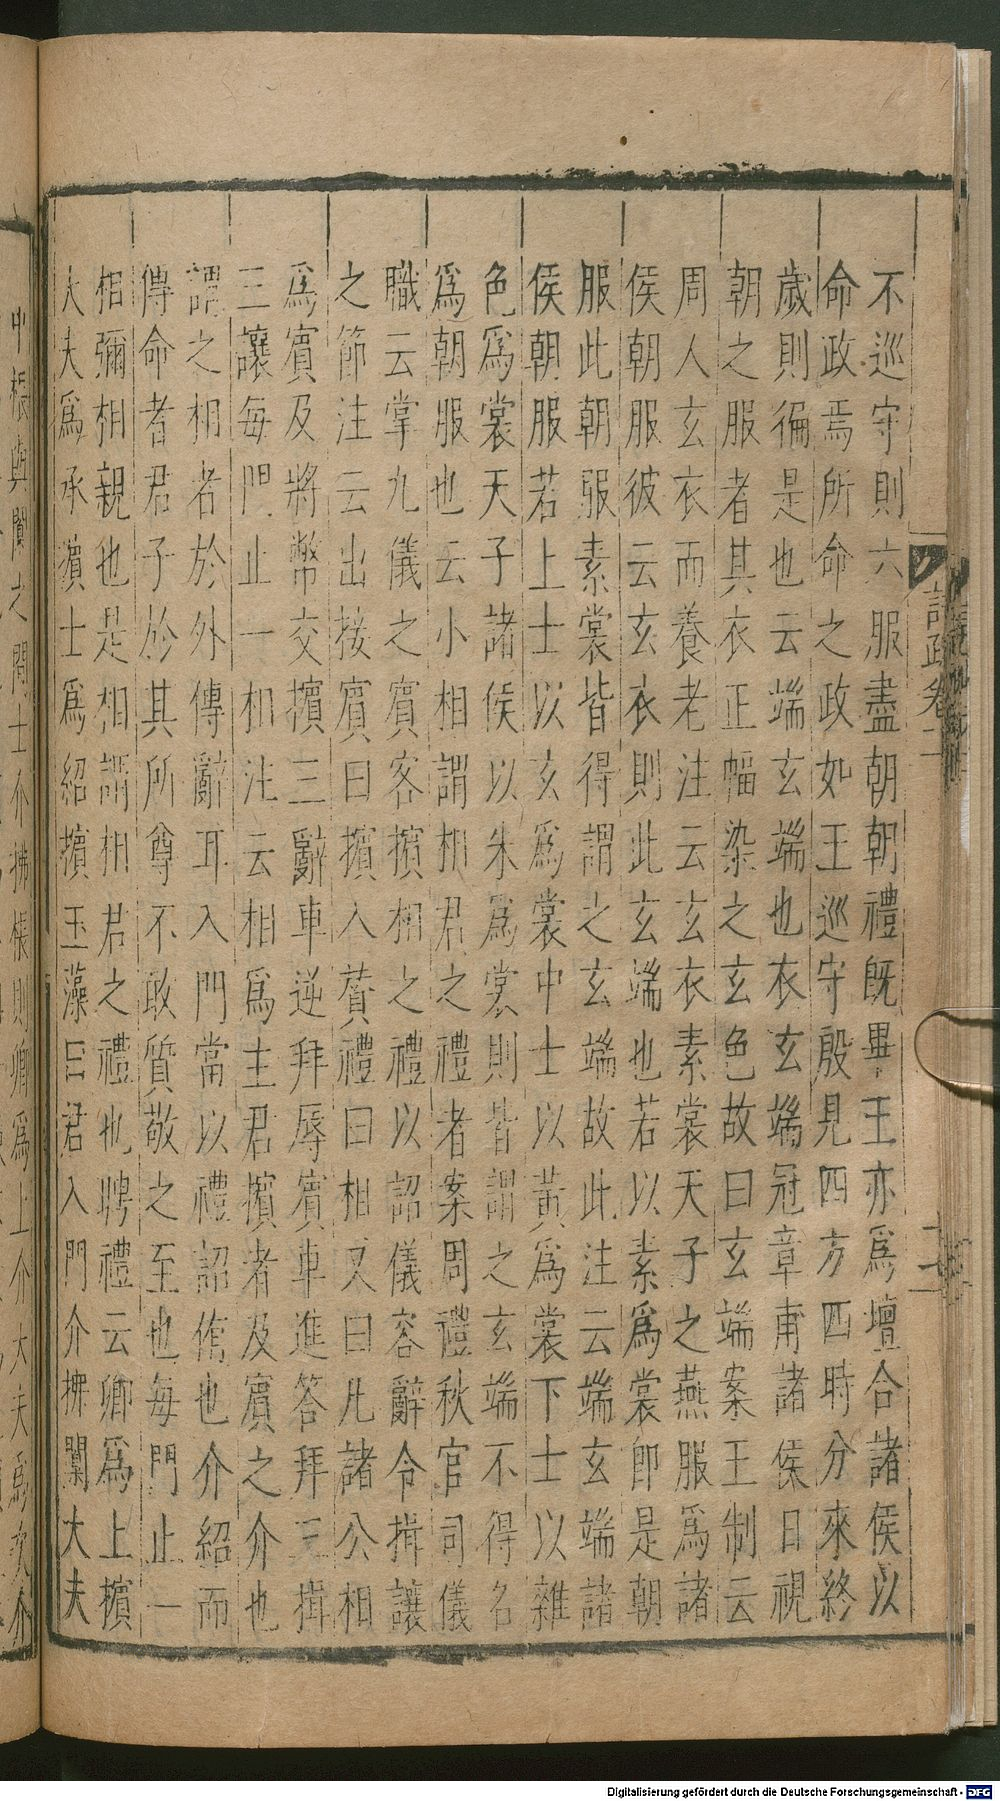 不巡守則六服盡朝朝禮旣畢王亦爲壇合諸侯以
命政焉所命之政如王巡守殷見四方四時分來終
歲則徧是也云端玄端也衣玄端冠章甫諸侯日視
朝之服者其衣正幅染之玄色故曰玄端案王制云
周人玄衣而養老注云玄衣素裳天子之燕服爲諸
侯朝服彼云玄衣則此玄端也若以素爲裳卽是朝
服此朝服素裳皆得謂之玄端故此注云端玄端諸
侯朝服若上士以玄爲裳中士以黃爲裳下士以雜
色爲裳天子諸侯以朱爲裳則皆謂之玄端不得名
爲朝服也云小相謂相君之禮者案周禮秋官司儀
職云掌九儀之賓客擯相之禮以詔儀容辭令揖讓
之節注云出接賓曰擯入贊禮曰相又曰凡諸公相
爲賓及將幣交擯三辭車逆拜辱賓車進答拜三揖
三讓每門止一相注云相爲主君擯者及賓之介也
謂之相者於外傳辭耳入門當以禮詔侑也介紹而
傳命者君子於其所尊不敢質敬之至也每門止一
相彌相親也是相謂相君之禮也聘禮云卿爲上擯
大夫爲承擯士爲紹擯玉藻曰君入門介拂闑大夫
中棖與闑之間士介拂棖則卿爲上介大夫爲次介
語疏卷十一
Digitalisierung gefördert durch die Deutsche Forschungsgemeinschaft - DFG